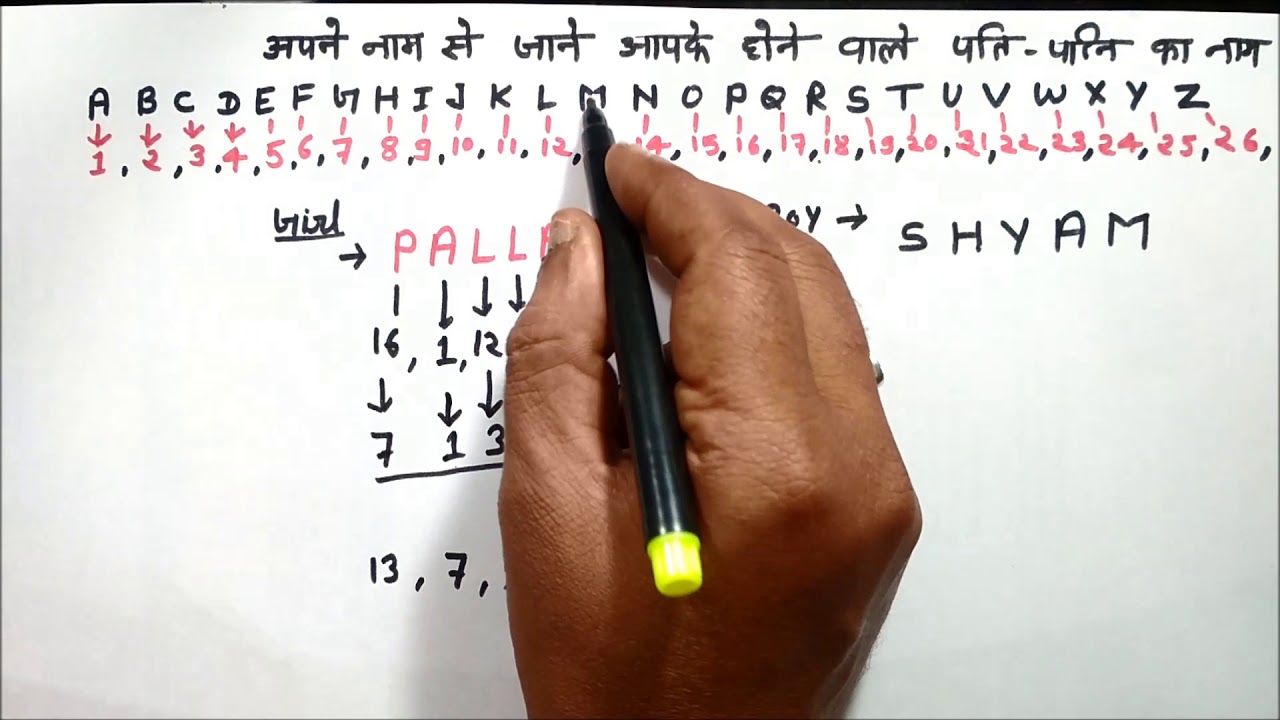 अपने नाम से जाने आपके होने वाले पति-पत्नि का नाम
A B C D E F G H I J K L M N O P Q R S T U V W X Y Z
1, 2, 3, 4, 5, 6, 7, 8, 9, 10, 11, 12, 14, 15, 16, 17, 18, 19, 20, 21, 22, 23, 24, 25, 26,
Girl → P A L L → S H Y A M
16, 1, 12
7 1 3
13, 7,